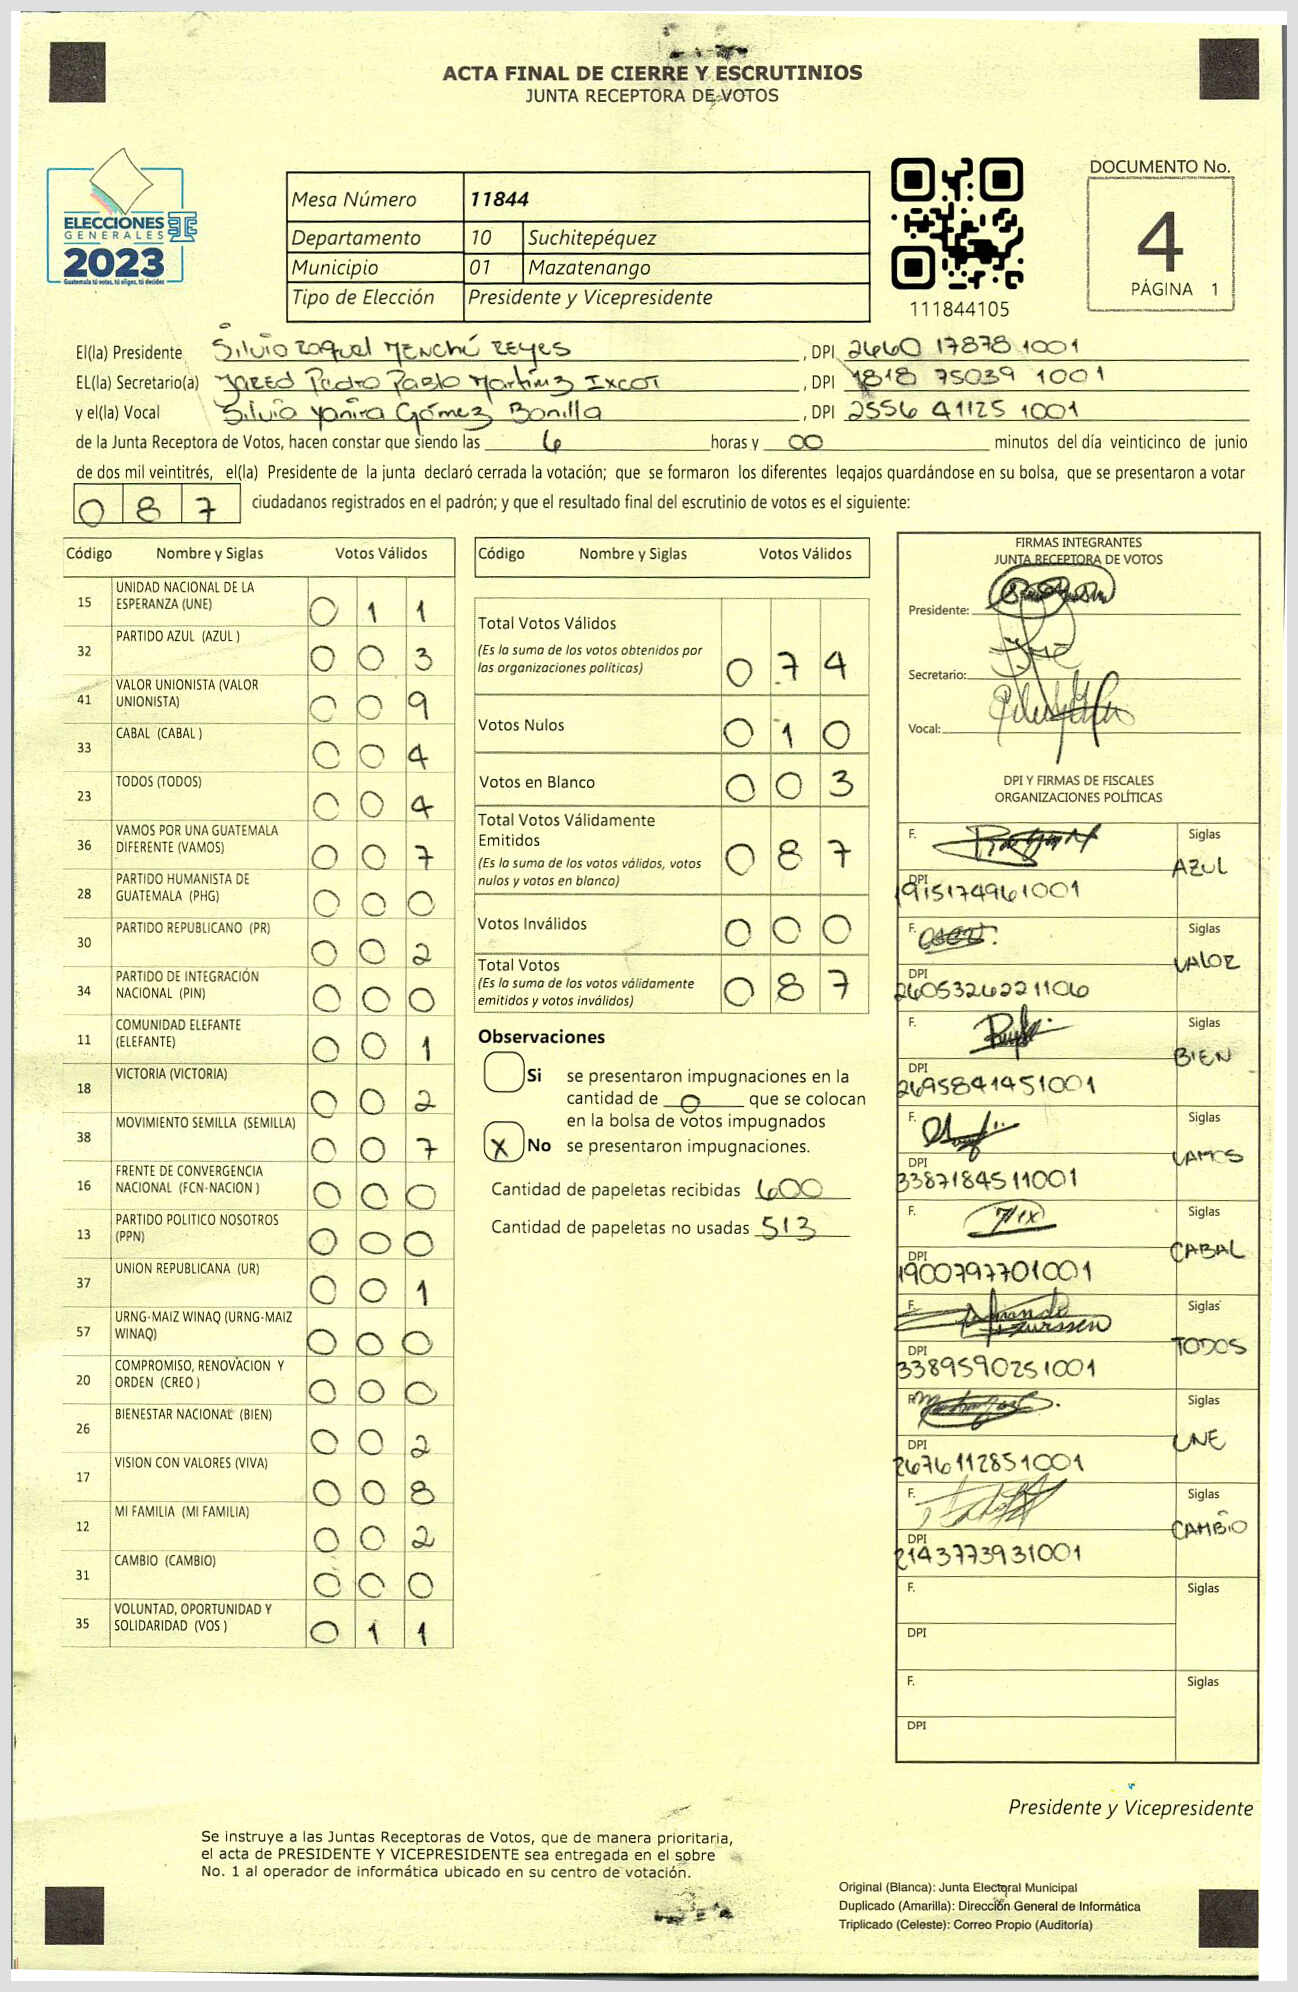 ACTA FINAL DE CIERRE Y ESCRUTINIOS
JUNTA RECEPTORA DE VOTOS
ELECCIONES
GENERALES
2023
Guatemala tú votas, tú eliges, tú decides
Mesa Número 11844
Departamento 10 Suchitepéquez
Municipio 01 Mazatenango
Tipo de Elección Presidente y Vicepresidente
111844105
DOCUMENTO No.
4
PÁGINA 1
El(la) Presidente Silvia Raquel Menchú Reyes, DPI 2660 17878 1001
EL(la) Secretario(a) Jared Pedro Pablo Martínez Ixcot, DPI 1818 75039 1001
y el(la) Vocal Silvia Yanira Gómez Bonilla, DPI 2556 41125 1001
de la Junta Receptora de Votos, hacen constar que siendo las 6 horas y 00 minutos del día veinticinco de junio
de dos mil veintitrés, el(la) Presidente de la junta declaró cerrada la votación; que se formaron los diferentes legajos quardándose en su bolsa, que se presentaron a votar
0 8 7 ciudadanos registrados en el padrón; y que el resultado final del escrutinio de votos es el siguiente:
Código Nombre y Siglas Votos Válidos
15 UNIDAD NACIONAL DE LA ESPERANZA (UNE) 0 1 1
32 PARTIDO AZUL (AZUL ) 0 0 3
41 VALOR UNIONISTA (VALOR UNIONISTA) 0 0 9
33 CABAL (CABAL ) 0 0 4
23 TODOS (TODOS) 0 0 4
36 VAMOS POR UNA GUATEMALA DIFERENTE (VAMOS) 0 0 7
28 PARTIDO HUMANISTA DE GUATEMALA (PHG) 0 0 0
30 PARTIDO REPUBLICANO (PR) 0 0 2
34 PARTIDO DE INTEGRACIÓN NACIONAL (PIN) 0 0 0
11 COMUNIDAD ELEFANTE (ELEFANTE) 0 0 1
18 VICTORIA (VICTORIA) 0 0 2
38 MOVIMIENTO SEMILLA (SEMILLA) 0 0 7
16 FRENTE DE CONVERGENCIA NACIONAL (FCN-NACION ) 0 0 0
13 PARTIDO POLITICO NOSOTROS (PPN) 0 0 0
37 UNION REPUBLICANA (UR) 0 0 1
57 URNG-MAIZ WINAQ (URNG-MAIZ WINAQ) 0 0 0
20 COMPROMISO, RENOVACION Y ORDEN (CREO ) 0 0 0
26 BIENESTAR NACIONAL (BIEN) 0 0 2
17 VISION CON VALORES (VIVA) 0 0 8
12 MI FAMILIA (MI FAMILIA) 0 0 2
31 CAMBIO (CAMBIO) 0 0 0
35 VOLUNTAD, OPORTUNIDAD Y SOLIDARIDAD (VOS ) 0 1 1
Código Nombre y Siglas Votos Válidos
Total Votos Válidos
(Es la suma de los votos obtenidos por
las organizaciones políticas) 0 7 4
Votos Nulos 0 1 0
Votos en Blanco 0 0 3
Total Votos Válidamente
Emitidos
(Es la suma de los votos válidos, votos
nulos y votos en blanco) 0 8 7
Votos Inválidos 0 0 0
Total Votos
(Es la suma de los votos válidamente
emitidos y votos inválidos) 0 8 7
Observaciones
Si se presentaron impugnaciones en la
cantidad de 0 que se colocan
en la bolsa de votos impugnados
X No se presentaron impugnaciones.
Cantidad de papeletas recibidas 600
Cantidad de papeletas no usadas 513
FIRMAS INTEGRANTES
JUNTA RECEPTORA DE VOTOS
Presidente:
Secretario:
Vocal:
DPI Y FIRMAS DE FISCALES
ORGANIZACIONES POLÍTICAS
F. Siglas AZUL
DPI 1915174961001
F. Siglas VALOR
DPI 2605326221106
F. Siglas BIEN
DPI 2695841451001
F. Siglas VAMOS
DPI 3387184511001
F. Siglas CABAL
DPI 1900797701001
F. Siglas TODOS
DPI 3389590251001
F. Siglas UNE
DPI 2676112851001
F. Siglas CAMBIO
DPI 2143773931001
F. Siglas
DPI
F. Siglas
DPI
Presidente y Vicepresidente
Se instruye a las Juntas Receptoras de Votos, que de manera prioritaria,
el acta de PRESIDENTE Y VICEPRESIDENTE sea entregada en el sobre
No. 1 al operador de informática ubicado en su centro de votación.
Original (Blanca): Junta Electoral Municipal
Duplicado (Amarilla): Dirección General de Informática
Triplicado (Celeste): Correo Propio (Auditoría)